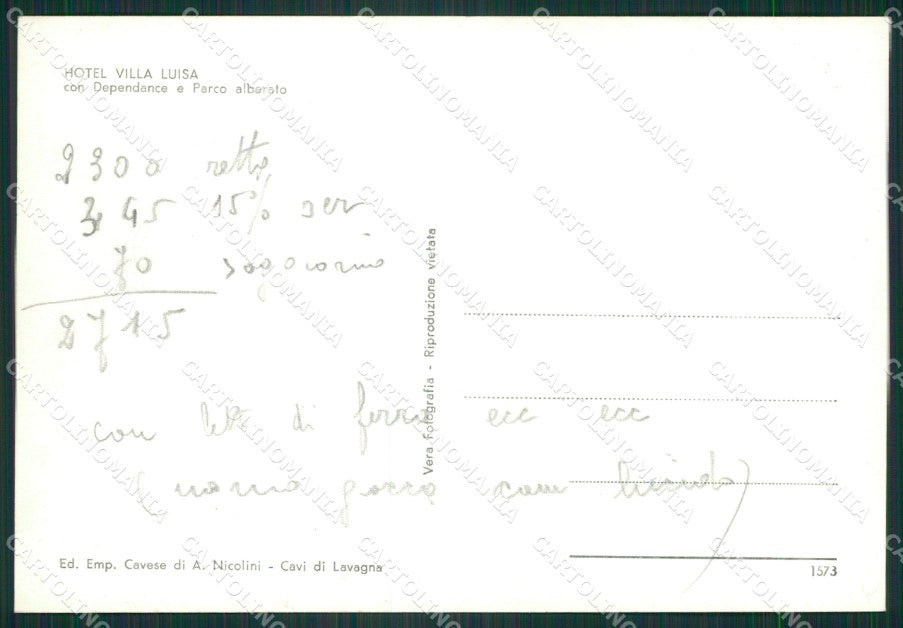 HOTEL VILLA LUISA
con Dependance e Parco alberato
2300 retta
345 15% ser
70 soggiorno
2715
con letti di ferro ecc ecc
Vera Fotografia - Riproduzione vietata
Ed. Emp. Cavese di A. Nicolini - Cavi di Lavagna
1573
CARTOLINOMANIA